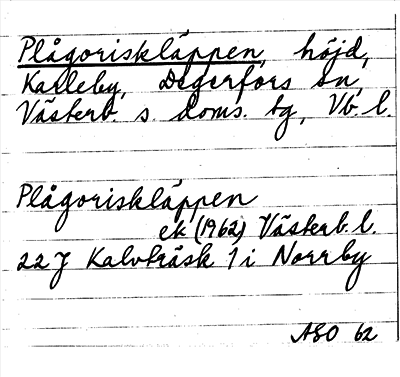 Plågoriskläppen, höjd,
Karleby, Degerfors sn,
Västerb. s. doms. tg, Vb. l.
Plågoriskläppen
ek (1962) Västerb. l.
22J Kalvträsk 1 i Norrby
ASO 62